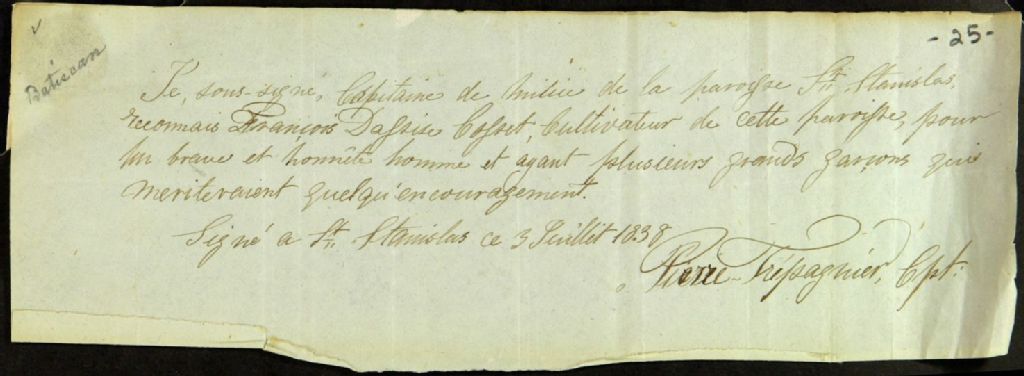 ✓
Batiscan
- 25 -
Je, sous-signé, Capitaine de milice de la paroisse St. Stanislas,
reconnais François Dassise Cosset, Cultivateur de cette paroisse, pour
un brave et honnête homme et ayant plusieurs grands garçons qui
meriteraient quelqu'encouragement.
Signé a St. Stanislas ce 3 Juillet 1838
Pierre Trépagnier, Cpt.